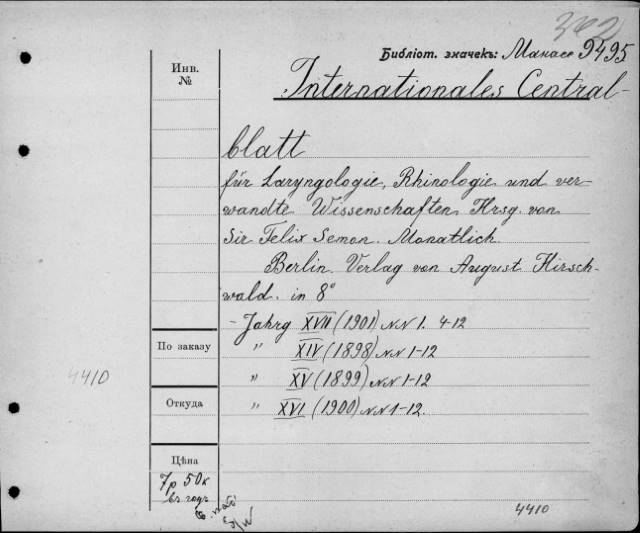 302
Библіот. значекъ: Манасе 9495
Инв.
№
Internationales Central-
blatt
für Laryngologie, Rhinologie und ver-
wandte Wissenschaften. Hrsg. von
Sir Felix Semon. Monatlich.
Berlin. Verlag von August Hirsch-
wald. in 8°
- Jahrg XVII (1901) NN 1. 4-12
По заказу
" XIV (1898) NN 1-12
4410
" XV (1899) NN 1-12
Откуда
" XVI (1900) NN 1-12.
Цѣна
7р 50к
въ годъ
4410